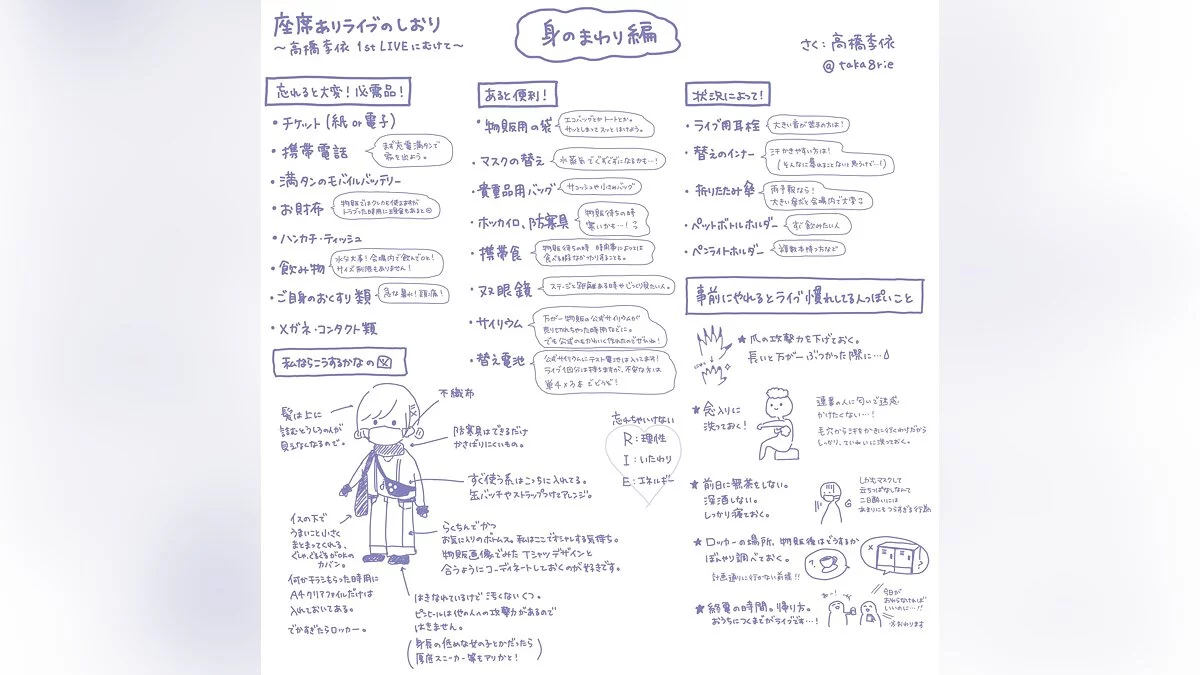 座席ありライブのしおり
〜高橋李依 1st LIVEにむけて〜
身のまわり編
さく:高橋李依
@taka8rie
忘れると大変!必需品!
・チケット(紙or電子)
・携帯電話
まず充電満タンで
家を出よう。
・満タンのモバイルバッテリー
・お財布
物販ではクレカも使えますが
トラブった時用に現金もあると
・ハンカチ・ティッシュ
・飲み物
水分大事!会場内で飲んでOK!
サイズ制限もありません!
・ご自身のおくすり類
急な鼻水!頭痛!
・メガネ・コンタクト類
あると便利!
・物販用の袋
エコバッグとかトートとか。
サッとしまってスッとはけよう。
・マスクの替え
水蒸気でぐずぐずになるかも…!
・貴重品用バッグ
サコッシュや小さめバッグ
・ホッカイロ、防寒具
物販待ちの時
寒いかも…!
・携帯食
物販待ちの時 時間帯によっては
食べる暇なかったりすることも。
・双眼鏡
ステージと距離ある時やじっくり見たい人。
・サイリウム
万が一物販の公式サイリウムが
売り切れちゃった時用などに。
でも公式のもかわいく作れたのでぜひね!
・替え電池
公式サイリウムにテスト電池は入ってます!
ライブ1回分は持ちますが、不安な方は
単4×3本でどうぞ!
状況によって!
・ライブ用耳栓
大きい音が苦手の方は!
・替えのインナー
汗かきやすい方は!
(そんなに暴れることないと思うけど…!)
・折りたたみ傘
雨予報なら!
大きい傘だと会場内で大変
・ペットボトルホルダー
すぐ飲みたい人
・ペンライトホルダー
複数本持つ方など
事前にやれるとライブ慣れしてる人っぽいこと
★爪の攻撃力を下げておく。
長いと万が一ぶつかった際に…
★念入りに
洗っておく!
連番の人に匂いで迷惑
かけたくない…!
毛穴から汗をかきに行くわけだから
しっかり、ていねいに洗っておく。
★前日に無茶をしない。
深酒しない。
しっかり寝ておく。
しかもマスクして
立ちっぱなしなんて
二日酔いには
あまりにもつらすぎる行為
★ロッカーの場所、物販後はどうするか
ぼんやり調べておく。
計画通りに行かない前提!!
★終電の時間。帰り方。
おうちにつくまでがライブです…!
今日が
おわらなければ
いいのに…!!
※おわります
私ならこうするかなの図
髪は上に
詰むとうしろの人が
見えなくなるので。
不織布
防寒具はできるだけ
かさばりにくいもの。
すぐ使う系はこっちに入れてる。
缶バッチやストラップつけてアレンジ。
イスの下で
うまいこと小さく
まとまってくれる、
ぐしゃぐるぐるがOKの
カバン。
何かチラシもらった時用に
A4クリアファイルだけは
入れておいてある。
でかすぎたらロッカー。
らくちんでかつ
お気に入りのボトムス。私はここでオシャレする気持ち。
物販画像でみたTシャツデザインと
合うようにコーディネートしておくのが好きです。
はきなれているけど汚くないくつ。
ピンヒールは他の人への攻撃力があるので
はきません。
(身長の低めな女の子とかだったら
厚底スニーカー等もアリかと!)
忘れちゃいけない
R:理性
I:いたわり
E:エネルギー